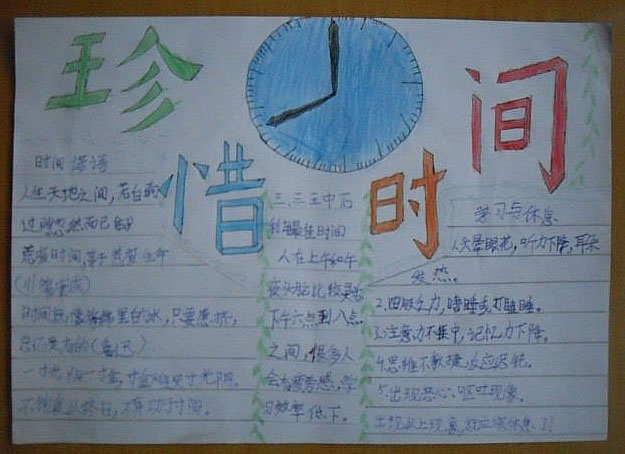 珍惜时间
时间谚语
人生天地之间,若白驹
过隙忽然而已
荒废时间,等于荒废生命
(川端康成)
时间就像海绵里的水,只要愿挤,
总还是有的(鲁迅)
一寸光阴一寸金,寸金难买寸光阴。
三、三五中石
利用最佳时间
人在上午和午
下午六点到八点
之间,很多人
会有疲劳感,学
习效率低下。
学习与休息
1.头晕眼花,听力下降,耳朵
发热。
2.四肢乏力,嗜睡或打瞌睡。
3.注意力不集中,记忆力下降。
4.思维不敏捷,反应迟钝。
5.出现恶心、呕吐现象。
出现以上现象,就应该休息了!